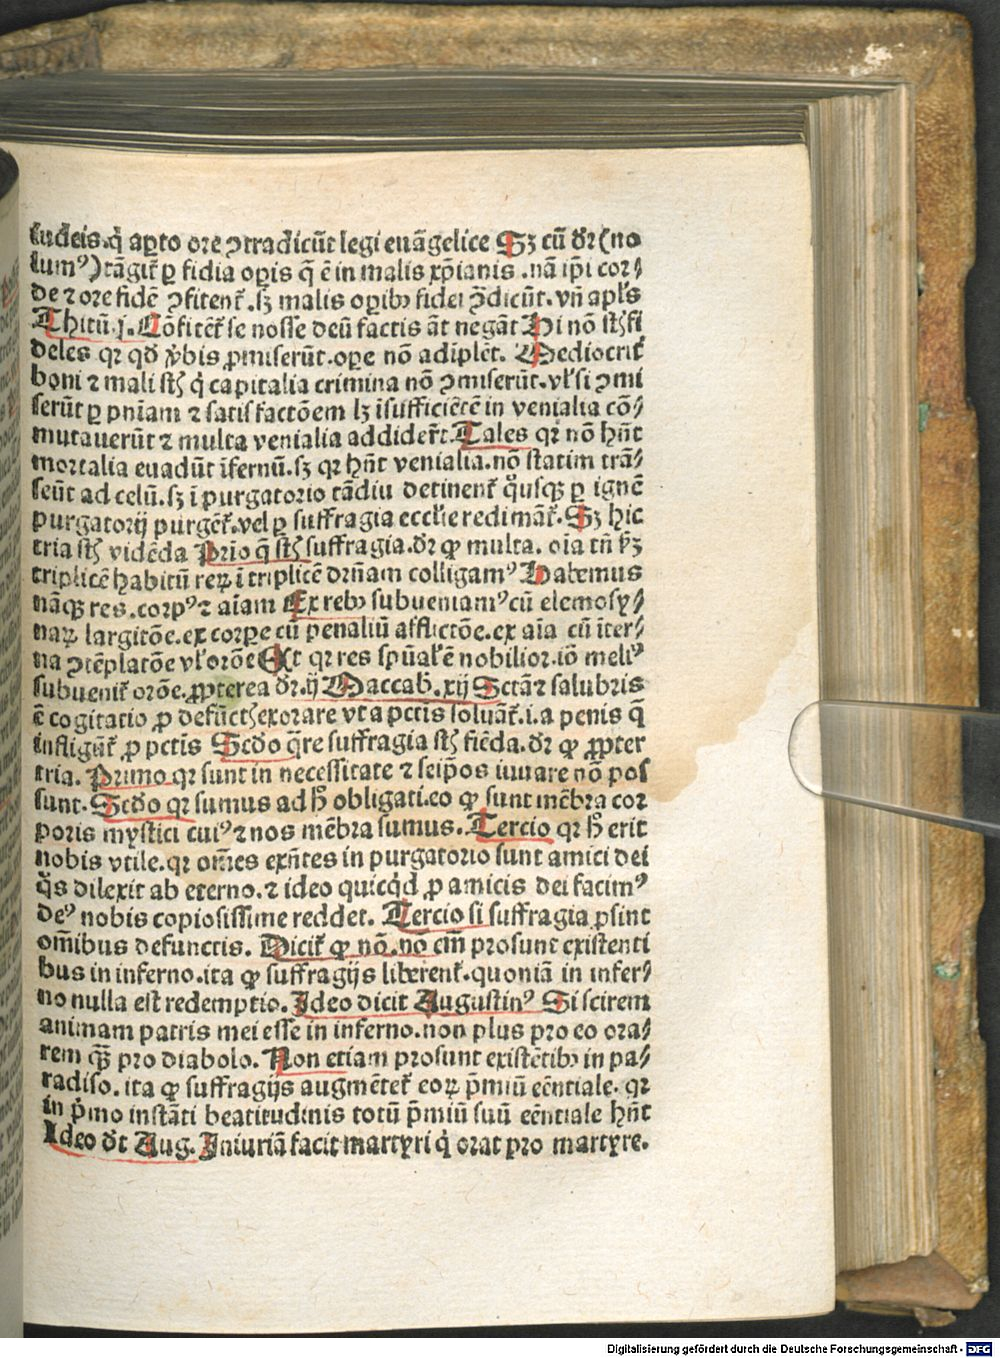 iudeis.q̇ aꝑto ore ꝯtradicūt legi euāgelice Sꝫ cū dr̄ (no
lum⁹) tāgit᷑ ꝑ fidia oꝑis q̄ ē in malis xp̄ianis .nā ip̄i cor⸗
de ⁊ ore fidē ꝯfitent᷑ .sꝫ malis oꝑibꝰ fidei ꝯ̄dicūt. vn̄ apl̄s
Thitū.j. Cōfitēt᷑ se nosse deū factis āt negāt Hi nō sūt fi
deles qꝛ qd̄ v̄bis ꝓmiserūt.oꝑe nō adiplēt. Mediocrit᷑
boni ⁊ mali sūt q̇ capitalia crimina nō ꝯmiserūt.vl̓ si ꝯmi
serūt ꝑ pn̄iam ⁊ satisfactōem lꝫ īsufficiētē in venialia cō⸗
mutauerūt ⁊ multa venialia addider̄t. Tales qꝛ nō hn̄t
mortalia euadūt īfernū.sꝫ qꝛ hn̄t venialia.nō statim trā⸗
seūt ad celū.sꝫ ī purgatorio tādiu detinent᷑ q̇usqꝫ ꝑ ignē
purgatorij purgēt᷑.vel ꝑ suffragia eccl̄ie redimāt᷑. Sꝫ hic
tria sūt vidēda Prīo q̄ sūt suffragia.dr̄ ꝙ multa. oīa tn̄ ẜꝫ
triplicē habitū reꝝ ī triplicē dr̄nam colligam⁹ Habemus
nāqꝫ res.corp⁹ ⁊ aīam Ex rebꝰ subueniam⁹ cū elemosy⸗
naꝝ largitōe.ex corꝑe cū penaliū afflictōe.ex aīa cū īter⸗
na ꝯtēplatōe vl̓ orōe Et qꝛ res sp̄ual̓ ē nobilior.iō meli⁹
subuenit᷑ orōe. ꝓpterea dr̄.ij Maccab̄. xij Sctā ⁊ salubris
ē cogitatio ꝓ defūctis exorare vt a pctīs soluāt᷑.i.a penis q̄
infligūt᷑ ꝓ pctīs Scdo q̄re suffragia sūt fiēda.dr̄ ꝙ ꝓpter
tria. Primo qꝛ sunt in necessitate ⁊ seip̄os iuuare nō pos
sunt. Scdo qꝛ sumus ad h̄ obligati.eo ꝙ sunt mēbra cor
poris mystici cui⁹ ⁊ nos mēbra sumus. Tercio qꝛ h̄ erit
nobis vtile.qꝛ om̄es exn̄tes in purgatorio sunt amici dei
q̇s dilexit ab eterno.⁊ ideo quicq̇d ꝓ amicis dei facim⁹
de⁹ nobis copiosissime reddet. Tercio si suffragia ꝓsint
om̄ibus defunctis. Dicit᷑ ꝙ nō.nō em̄ prosunt existenti
bus in inferno.ita ꝙ suffragijs liberent᷑.quoniā in infer⸗
no nulla est redemptio. Ideo dicit Augustin⁹ Si scirem
animam patris mei esse in inferno.non plus pro eo ora⸗
rem qꝫ̄ pro diabolo. Non etiam prosunt existētibꝰ in pa⸗
radiso.ita ꝙ suffragijs augmētet᷑ eoꝝ p̄miū eēntiale. qꝛ
in p̓mo instāti beatitudinis totū p̄miū suū eēntiale hn̄t
Ideo dt̄ Aug. Iniuriā facit martyri q̇ orat pro martyre.
Digitalisierung gefördert durch die Deutsche Forschungsgemeinschaft - DFG